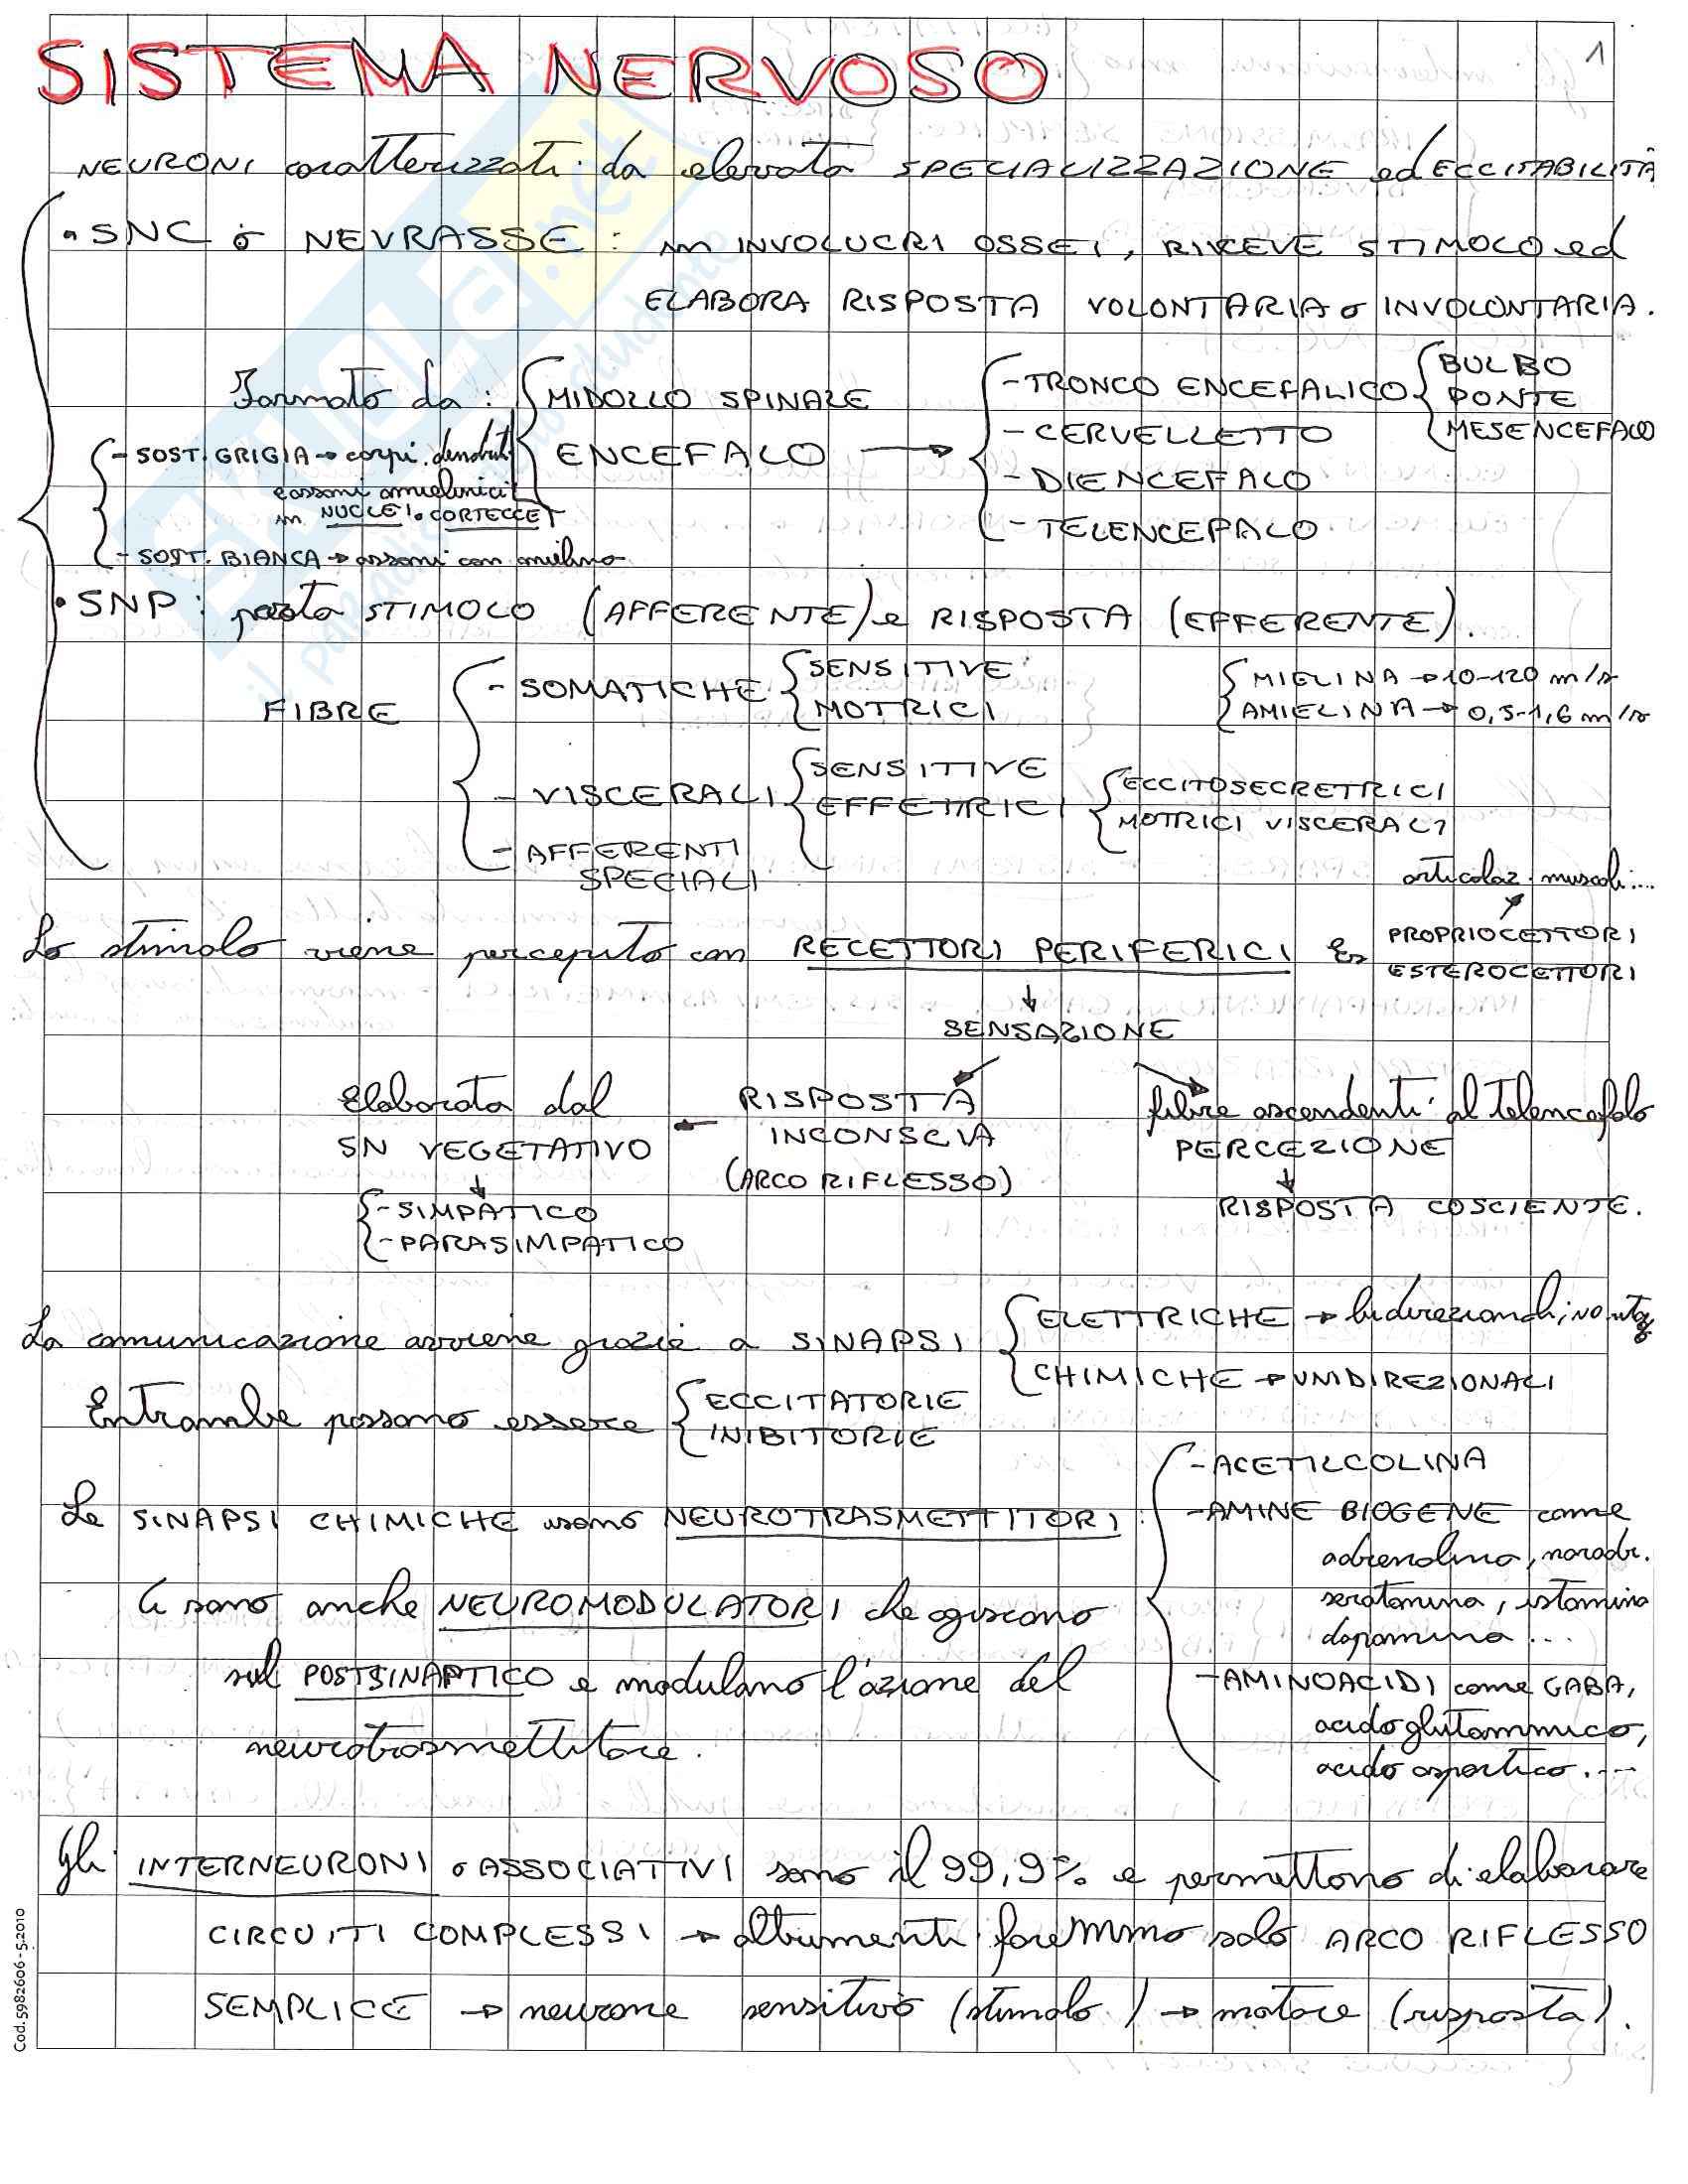 1
SISTEMA NERVOSO
NEURONI caratterizzati da elevata SPECIALIZZAZIONE ed ECCITABILITÀ
• SNC o NEVRASSE : in INVOLUCRI OSSEI, RICEVE STIMOLO ed
ELABORA RISPOSTA VOLONTARIA o INVOLONTARIA.
Formato da : MIDOLLO SPINALE
ENCEFALO →
- TRONCO ENCEFALICO
BULBO
PONTE
MESENCEFALO
- CERVELLETTO
- DIENCEFALO
- TELENCEFALO
- SOST. GRIGIA → corpi, dendriti
e assoni amielinici
in NUCLEI o CORTECCE
- SOST. BIANCA → assoni con mielina
• SNP : porta STIMOLO (AFFERENTE) e RISPOSTA (EFFERENTE).
FIBRE
- SOMATICHE
SENSITIVE
MOTRICI
MIELINA → 10-120 m/s
AMIELINA → 0,5-1,6 m/s
- VISCERALI
SENSITIVE
EFFETTRICI
ECCITOSECRETTRICI
MOTRICI VISCERALI
- AFFERENTI
SPECIALI
articolaz. muscoli...
Lo stimolo viene percepito con RECETTORI PERIFERICI Es
PROPRIOCETTORI
ESTEROCETTORI
↓
SENSAZIONE
Elaborata dal
SN VEGETATIVO
↓
- SIMPATICO
- PARASIMPATICO
RISPOSTA
INCONSCIA
(ARCO RIFLESSO)
fibre ascendenti al telencefalo
PERCEZIONE
↓
RISPOSTA COSCIENTE.
La comunicazione avviene grazie a SINAPSI
ELETTRICHE → bidirezionali, NO
CHIMICHE → UNIDIREZIONALI
Entrambe possono essere
ECCITATORIE
INIBITORIE
Le SINAPSI CHIMICHE usano NEUROTRASMETTITORI :
- ACETILCOLINA
- AMINE BIOGENE come
adrenalina, noradr.
serotonina, istamina
dopamina ...
- AMINOACIDI come GABA,
acido glutammico,
acido aspartico ...
Ci sono anche NEUROMODULATORI che agiscono
sul POSTSINAPTICO e modulano l'azione del
neurotrasmettitore.
Gli INTERNEURONI o ASSOCIATIVI sono il 99,9% e permettono di elaborare
CIRCUITI COMPLESSI → altrimenti faremmo solo ARCO RIFLESSO
SEMPLICE → neurone sensitivo (stimolo) → motore (risposta).
Cod. 5982606 - 5.2010
SKUOLA.net
il paradiso dello studente